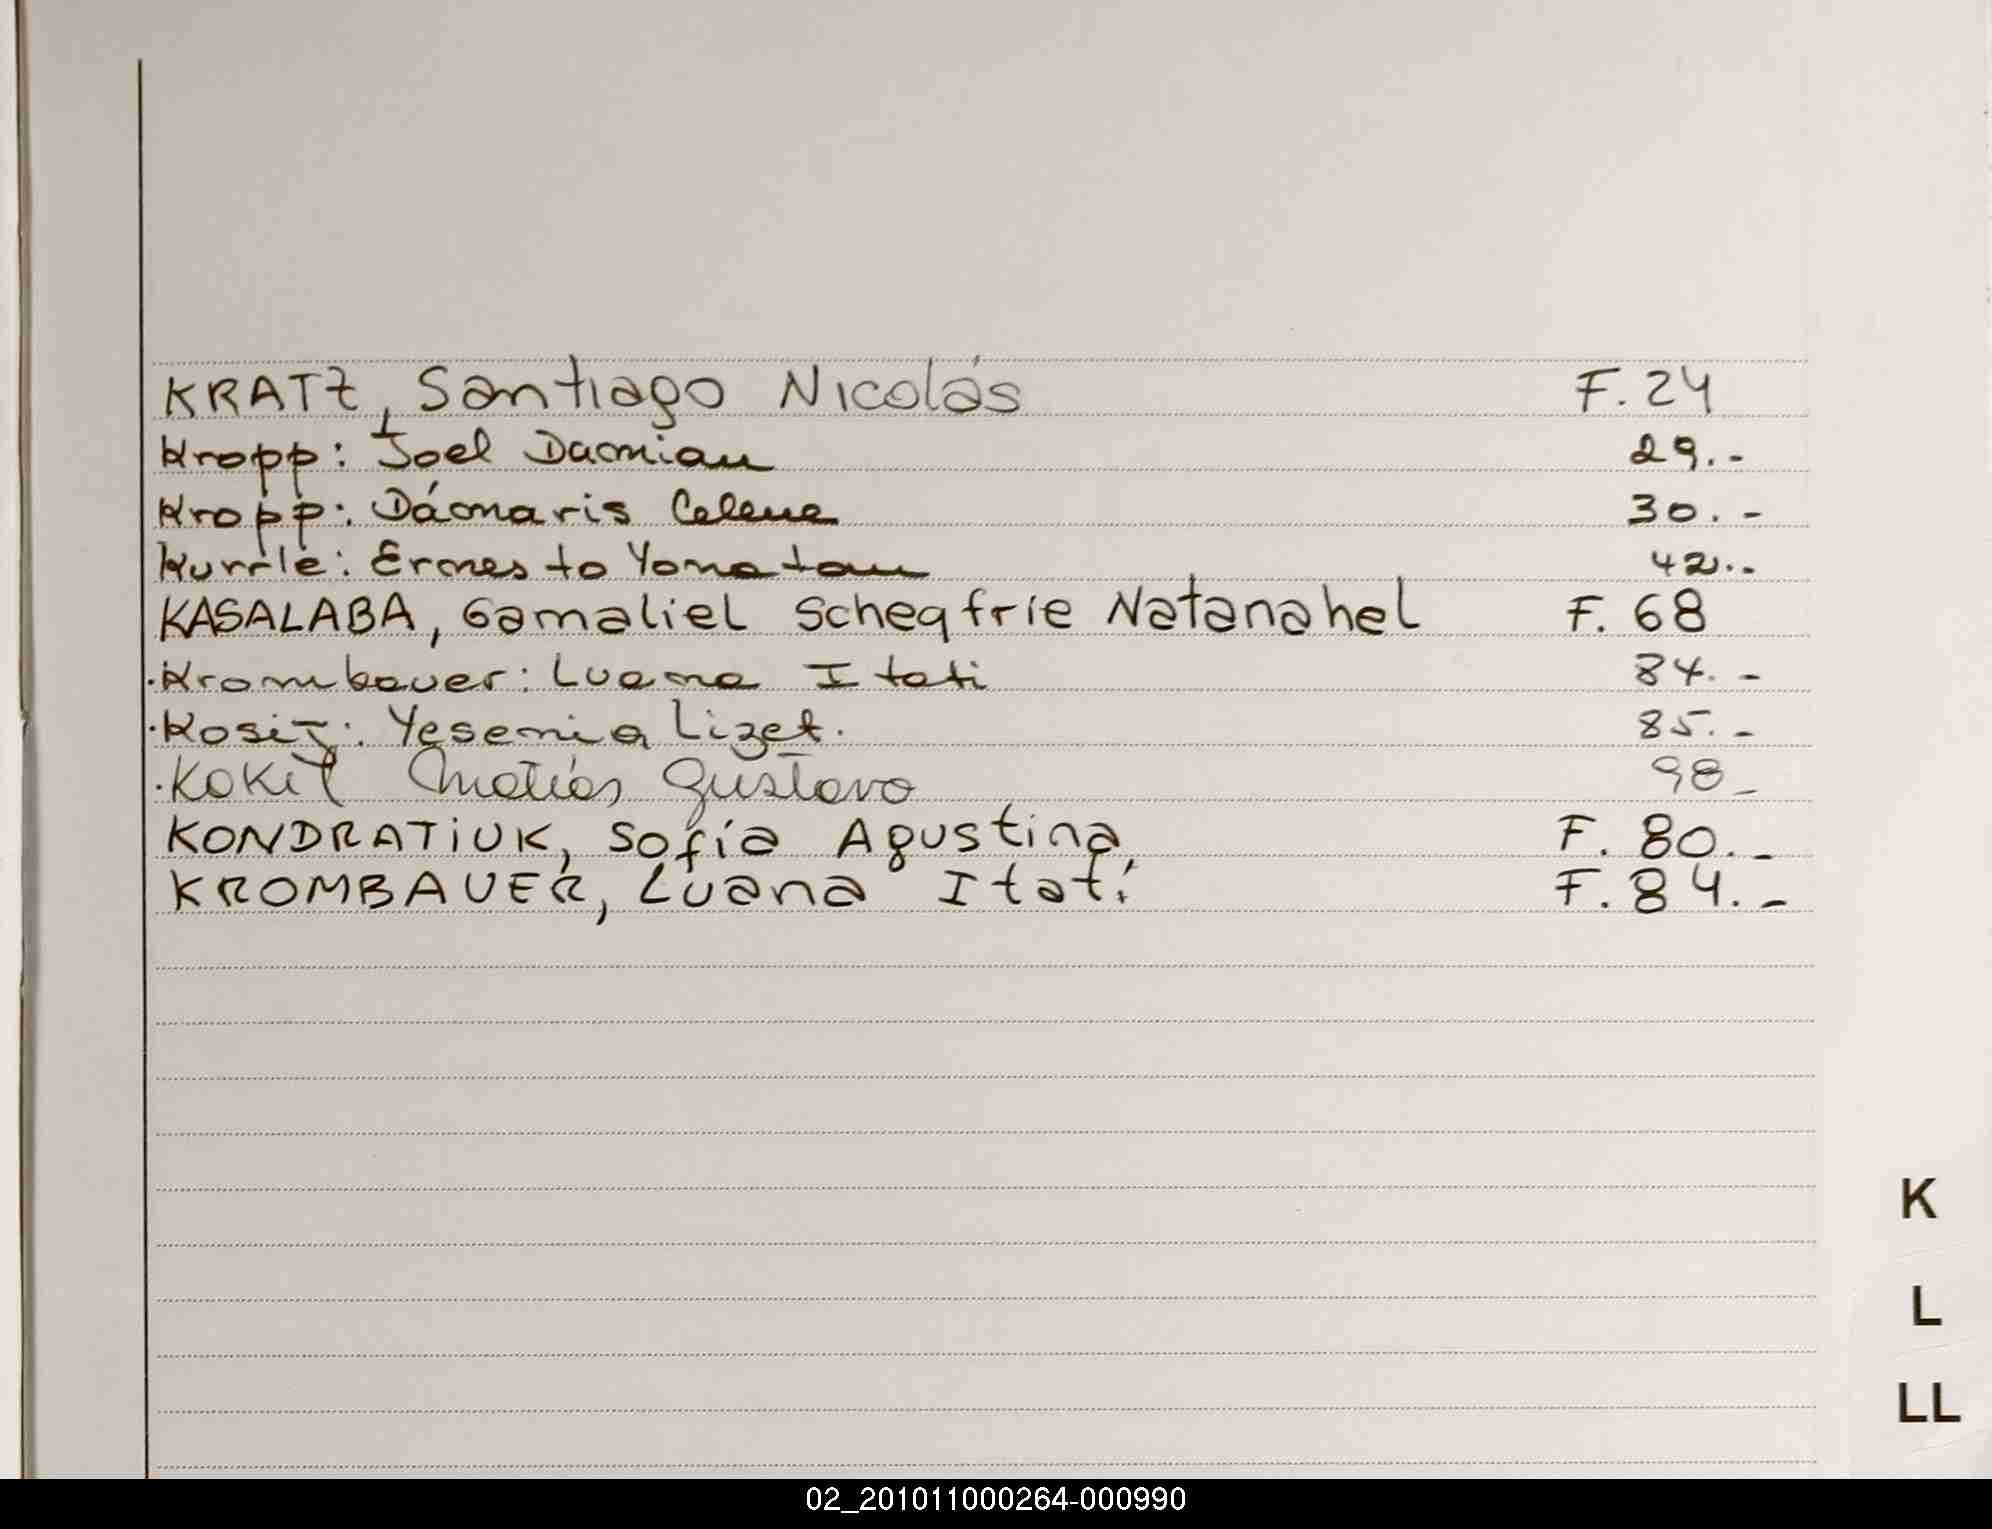 KRATZ, Santiago Nicolás F. 24
Kropp: Joel Damian 29.-
Kropp: Dámaris Celene 30.-
Kurrle: Ernesto Yonatan 42.-
KASALABA, Gamaliel Scheqfrie Natanahel F. 68
.Krombauer: Luana Itati 84.-
. Yesenia Lizet. 85.-
. Matías Gustavo 98_
KONDRATIUK, Sofía Agustina, F. 80.-
KROMBAUER, Luana Itatí F. 84.-
K
L
LL
02_201011000264-000990